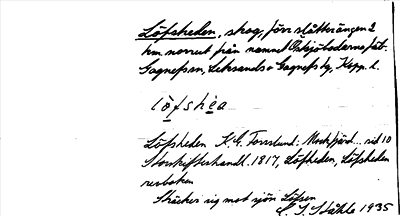 Löfsheden, skog, förr slåtterängen 2
km norrut från namnet Östsjöbodarna, fäb.
Gagnefsn, Leksands o Gagnefs tg, Kopp. l.
lö̀fshèa
Löfsheden K. G. Forslund: Mockfjärd... sid 10
Storskifteshandl. 1817, Löfheden, Löfsheden
resboken
Sträcker sig mot sjön Löfsen
C. J. Ståhle 1935